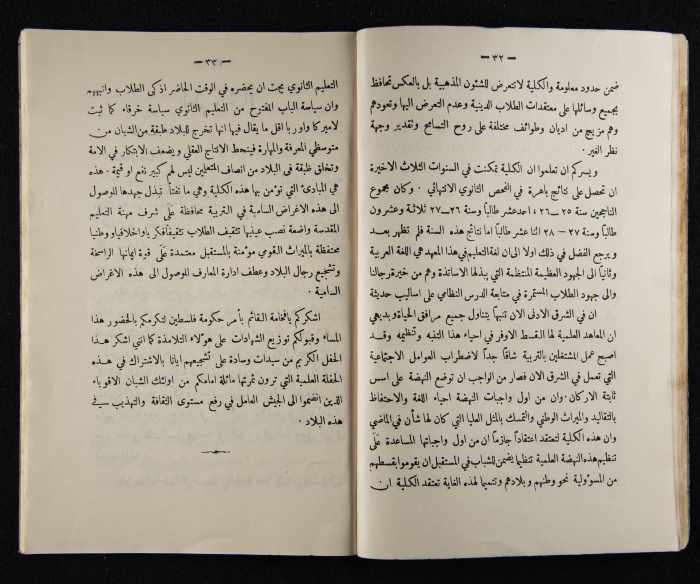 — ٣٢ —
ضمن حدود معلومة والكلية لا تتعرض للشئون المذهبية بل بالعكس تحافظ
بجميع وسائلها على معتقدات الطلاب الدينية وعدم التعرض اليها وتعودهم
وهم مزيج من اديان وطوائف مختلفة على روح التسامح وتقدير وجهة
نظر الغير .
ويسركم ان تعلموا ان الكلية تمكنت في السنوات الثلاث الاخيرة
ان تحصل على نتائج باهرة في الفحص الثانوي الانتهائي . وكان مجموع
الناجحين سنة ٢٥ — ٢٦ : احد عشر طالباً وسنة ٢٦ — ٢٧ ثلاثة وعشرون
طالباً وسنة ٢٧ — ٢٨ اثنا عشر طالباً اما نتائج هذه السنة فلم تظهر بعد
ويرجع الفضل في ذلك اولا الى ان لغة التعليم في هذا المعهد هي اللغة العربية
وثانياً الى الجهود العظيمة المنتظمة التي يبذلها الاساتذة وهم من خيرة رجالنا
والى جهود الطلاب المستمرة في متابعة الدرس النظامي على اساليب حديثة
ان في الشرق الادنى الان تنبهاً يتناول جميع مرافق الحياة وبديهي
ان المعاهد العلمية لها القسط الاوفر في احياء هذا التنبه وتنظيمه وقد
اصبح عمل المشتغلين بالتربية شاقاً جداً لاضطراب العوامل الاجتماعية
التي تعمل في الشرق الان فصار من الواجب ان توضع النهضة على اسس
ثابتة الاركان . وان من اول واجبات النهضة احياء اللغة والاحتفاظ
بالتقاليد والميراث الوطني والتمسك بالمثل العليا التي كان لها شأن في الماضي
وان هذه الكلية لتعتقد اعتقاداً جازماً ان من اول واجباتها المساعدة على
تنظيم هذه النهضة العلمية تنظيما يضمن للشباب في المستقبل ان يقوموا بقسطهم
من المسؤولية نحو وطنهم وبلادهم وتتميما لهذه الغاية تعتقد الكلية ان
— ٣٣ —
التعليم الثانوي يجب ان يحضره في الوقت الحاضر اذكى الطلاب وانبههم
وان سياسة الباب المفتوح من التعليم الثانوي سياسة خرقاء كما ثبت
لاميركا واوربا اقل ما يقال فيها انها تخرج للبلاد طبقة من الشبان من
متوسطي المعرفة والمهارة فينحط الانتاج العقلي ويضعف الابتكار في الامة
وتخلق طبقة في البلاد من انصاف المتعلمين ليس لهم كبير نفع او قيمة . هذه
هي المبادئ التي نؤمن بها هذه الكلية وهي ما تفتأ تبذل جهدها للوصول
الى هذه الاغراض السامية في التربية محافظة على شرف مهنة التعليم
المقدسة واضعة نصب عينيها تثقيف الطلاب تثقيفاً فكرياً واخلاقياً ووطنيا
محتفظة بالميراث القومي مؤمنة بالمستقبل معتمدة على قوة ايمانها الراسخة
وتشجيع رجال البلاد وعطف ادارة المعارف للوصول الى هذه الاغراض
السامية .
اشكركم يا فخامة القائم بأمر حكومة فلسطين لتكرمكم بالحضور هذا
المساء وقبولكم توزيع الشهادات على هؤلاء التلامذة كما انني اشكر هذا
الحفل الكريم من سيدات وسادة على تشجيعهم ايانا بالاشتراك في هذه
الحفلة العلمية التي ترون ثمرتها ماثلة امامكم من اولئك الشبان الاقوياء
الذين انضموا الى الجيش العامل في رفع مستوى الثقافة والتهذيب في
هذه البلاد .